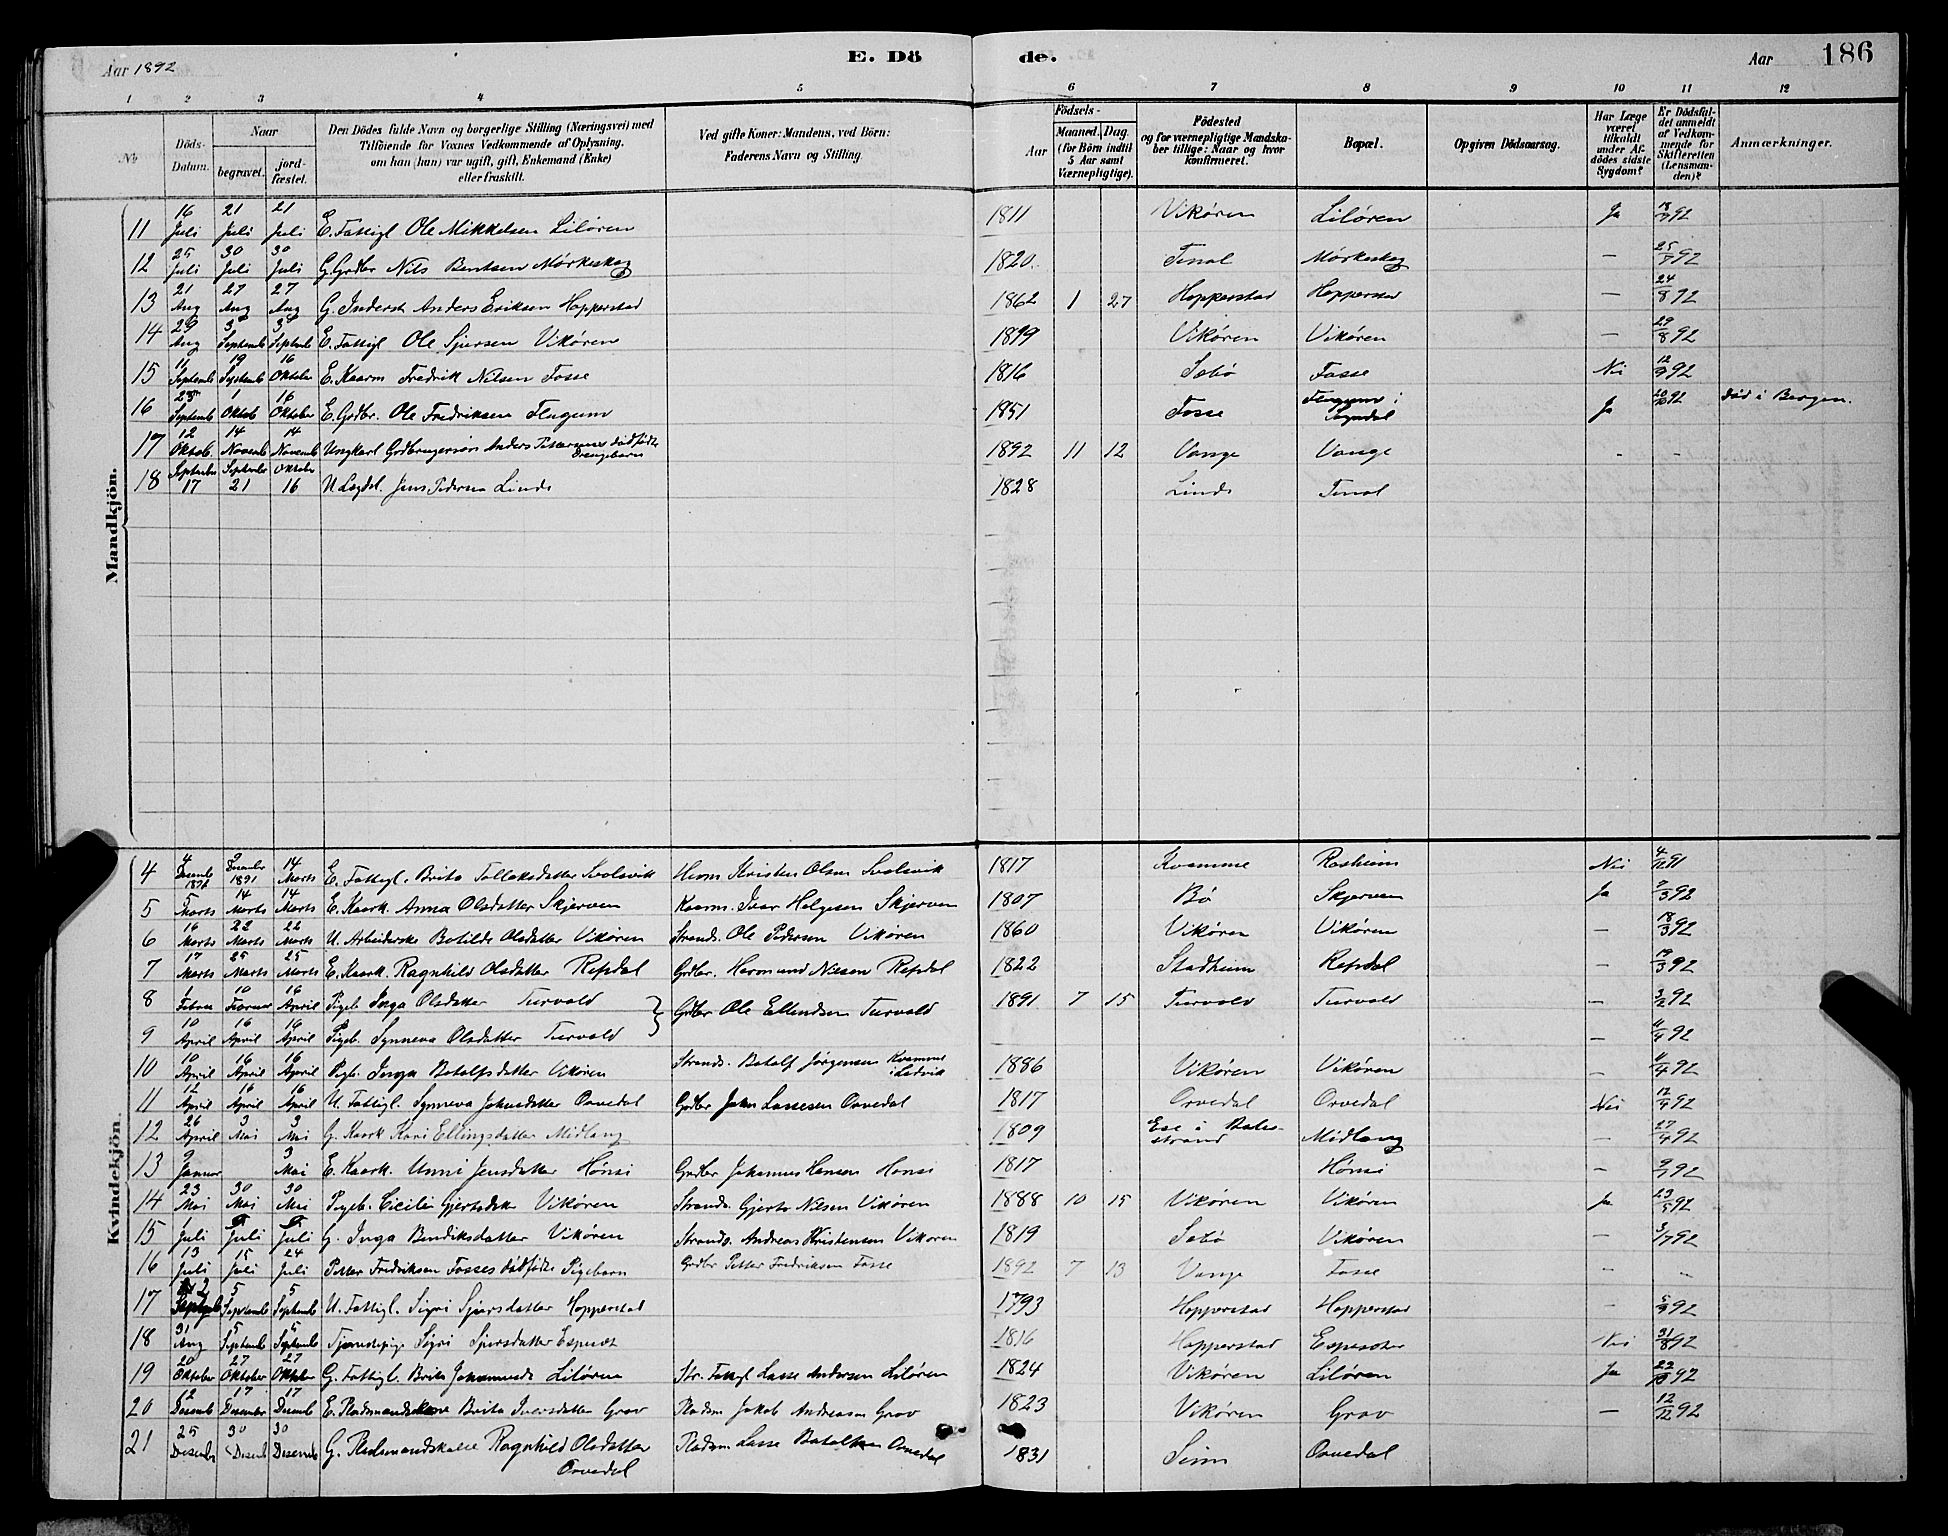 Aar 1892 E. Dö de. Aar 186
1 2 3 4 5 6 7 8 9 10 11 12
No
Döds-Datum.
Naar
begravet.
jord-fæstet.
Den Dödes fulde Navn og borgerlige Stilling (Næringsvei) med
Tilföiende for Voxnes Vedkommende af Oplysning,
om han (hun) var ugift, gift, Enkemand (Enke)
eller fraskilt.
Ved gifte Koner: Mandens, ved Börn:
Faderens Navn og Stilling.
Aar
Födsels-
Maaned. Dag.
(for Börn indtil
5 Aar samt
Værnepligtige).
Födested
og for værnepligtige Mandska-
ber tillige: Naar og hvor
konfirmeret.
Bopæl.
Opgiven Dödsaarsag.
Har Læge
været
tilkaldt
under Af-
dödes sidste
Sygdom?
Er Dödsfal-
det anmeldt
af Vedkom-
mende for
Skifteretten
(Lensman-
den)?
Anmærkninger.
Mandkjön.
11 16 Juli 21 Juli 21 Juli E. Fattigl Ole Mikkelsen Lilören 1811 Vikören Lilören Ja 18/7 92
12 25 Juli 30 Juli 30 Juli G. Grdbr Nils Bentsen Mörkeskog 1820. Tenol Mörkeskog — 25/7 92
13 21 Aug 27 Aug 27 Aug G. Inderst Anders Eriksen Hopperstad 1862 1 27 Hopperstad Hopperstad — 24/8 92
14 29 Aug 3 Septemb 3 Septemb E. Fattigl Ole Sjursen Vikören 1819 Vikören Vikören — 29/8 92
15 11 Septemb 19 Septemb 16 Oktober E. Kaarm Fredrik Nilsen Fosse 1816 Sæbö Fosse Nei 12/9 92
16 23 Septemb 1 Oktob 16 Oktober E. Grdbr. Ole Fredriksen Flugum 1851 Fosse Flugum i Sogndal Ja 20/10 92 död i Bergen.
17 12 Oktob. 14 Novemb 14 Novemb Ungkarl Grdbrugersön Anders Pettersens dödfödte Drengebarn 1892 11 12 Vange Vange - -
18 Septembr 17 September 21 Oktober 16 U Lægdsl. Jens Pedersen Linde 1828 Linde Tenol
Kvindekjön.
4 4 Desemb 9 Desember 1891 14 Marts E. Fattigl. Brita Tollaksdatter Svolsvik Huusm Kristen Olsen Svolsvik 1817 Kvamme Rosheim Nei 4/12 91
5 5 Marts 14 Marts 14 Marts E. Kaark. Anna Olsdatter Skjerven Kaarm. Ivar Helgesen Skjerven 1807 Bö Skjerven Ja 7/3 92
6 16 Marts 22 Marts 22 Marts U. Arbeiderske Botilde Olsdatter Vikören Strands. Ole Pedersen Vikören 1860 Vikören Vikören — 18/3 92
7 17 Marts 25 Marts 25 Marts E. Kaark. Ragnhild Olsdatter Refsdal Grdbr. Hermund Nilsen Refsdal 1822 Stadheim Refsdal — 19/3 92
8 1 Februar 10 Februar 16 April Pigeb Inga Olsdatter Turvold } Grdbr Ole Ellendsen Turvold 1891 7 15 Turvold Turvold — 3/2 92
9 10 April 16 April 16 April Pigeb. Synneva Olsdatter Turvold — 11/4 92
10 10 April 16 April 16 April Pigb. Inga Botolfsdatter Vikören Strands. Botolf Jörgensen Kvamme i Ladvik 1886 Vikören Vikören — 11/4 92
11 12 April 16 April 16 April U. Fattigl. Synneva Johnsdatter Orvedal Grdbr John Lassesen Orvedal 1817 Orvedal Orvedal Nei 12/4 92
12 26 April 3 Mai 3 Mai G. Kaark Kari Ellingsdatter Midlang 1809 Ese i Balestrand Midlang — 27/4 92
13 9 Januar 3 Mai E. Kaark. Unni Jensdatter Hönsi Grdbr Johannes Hansen Hönsi 1817 Hönsi — 9/1 92
14 23 Mai 30 Mai 30 Mai Pigeb. Cicilie Gjertsdtr Vikören Strands. Gjerts Nilsen Vikören 1888 10 15 Vikören Vikören Ja 23/5 92
15 1 Juli 9 Juli 9 Juli G. Inga Bendiksdatter Vikören Strands. Andreas Kristensen Vikören 1819 Sæbö Vikören — 3/7 92
16 13 Juli 15 Juli 24 Juli Petter Fredriksen Fosses dödfödte Pigebarn Grdbr Petter Fredriksen Fosse 1892 7 13 Vange Fosse — "
17 2 Septemb 5 Septemb 5 Septemb U. Fattigl. Sigri Sjursdatter Hopperstad 1793 Hopperstad Hopperstad — 5/9 92
18 31 Aug 5 Septemb 5 Septemb Tjenestepige Sigri Sjursdatter Espeset 1816 Hopperstad Espeseter Nei 31/8 92
19 20 Oktober 27 Oktober 27 Oktober G. Fattigl. Brita Johannesdr Lilören Str. Fattigl Lasse Andersen Lilören 1824 Vikören Lilören Ja 22/10 92
20 12 Desemb 17 Desember 17 Desemb E. Pladsmandskone Brita Iversdatter Grov Pladsm Jakob Andreasen Grov 1823 Vikören Grov — 12/12 92
21 25 Desember 30 Desemb 30 Desemb G. Pladsmandskone Ragnhild Olsdatter Orvedal Pladsm Lasse Botolfsen Orvedal 1831 Sinn Orvedal